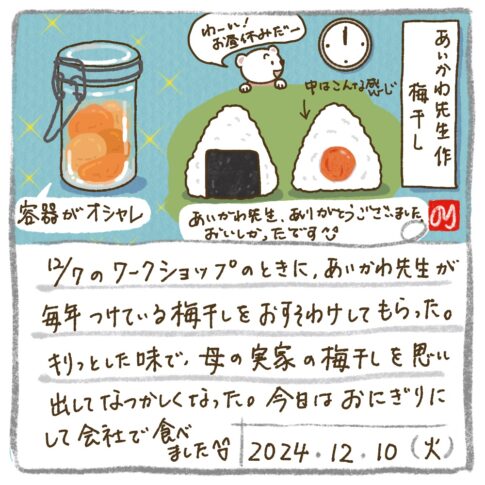 わーい!
お昼休みだー
中はこんな感じ
あいかわ先生作
梅干し
容器がオシャレ
あいかわ先生、ありがとうございました。
おいしかったです
12/7のワークショップのときに、あいかわ先生が
毎年つけている梅干しをおすそわけしてもらった。
キリっとした味で、母の実家の梅干しを思い
出してなつかしくなった。今日はおにぎりに
して会社で食べ
ました
2024.12.10(火)